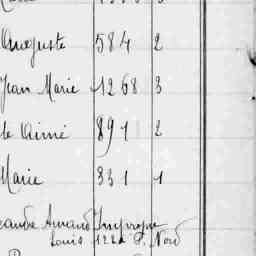 Auguste 584 2
Jean Marie 1268 3
le Aimé 891 2
Marie 331 1
Armand
Louis 1221 P. Nord